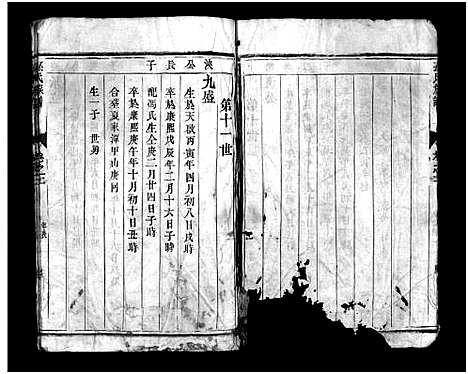 第十一世
浹公長子
九盛
生於天啟丙寅年四月初八日戌時
卒於康熙戊辰年二月十六日子時
配馮氏生仝庚二月廿四日子時
卒於康熙庚午年十月初十日丑時
合塟夏家潭甲山庚向
生一子 世勇